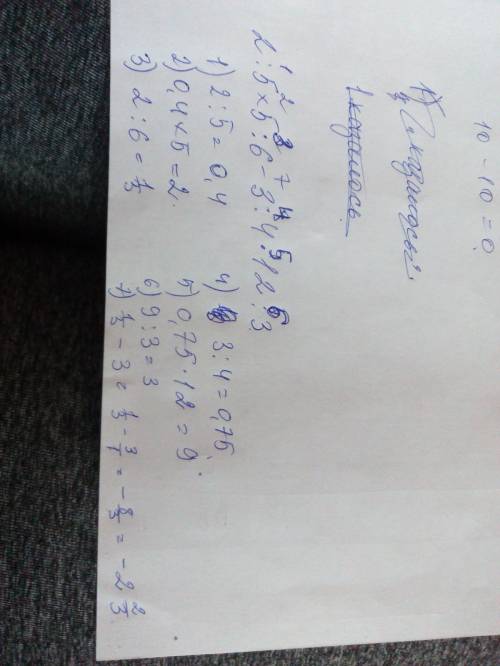 10 - 10 = 0
казалось
2 : 5 × 5 : 6 - 3 : 4 · 12 : 3
1 2 3 7 4 5 6
1) 2 : 5 = 0,4
2) 0,4 × 5 = 2.
3) 2 : 6 = 1/3
4) 3 : 4 = 0,75,
5) 0,75 · 12 = 9.
6) 9 : 3 = 3
7) 1/3 - 3 = 1/3 - 3/1 = - 8/3 = - 2 2/3